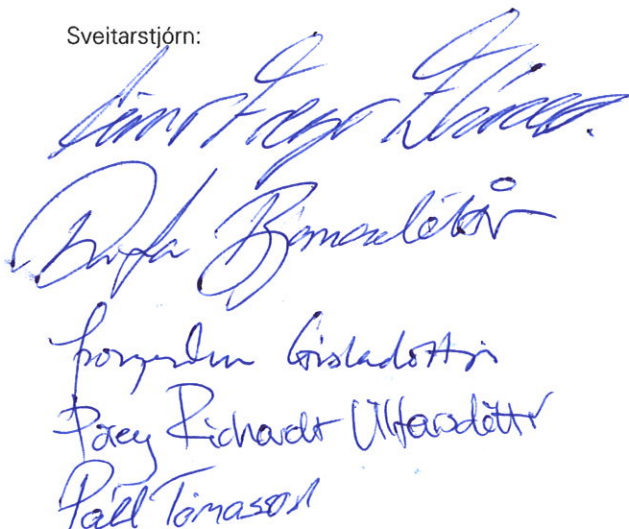 Sveitarstjórn:
Freyr
Drífa Bjarnadóttir
Þorgerður Gísladóttir
Þórey Richardt Úlfarsdóttir
Páll Tómasson